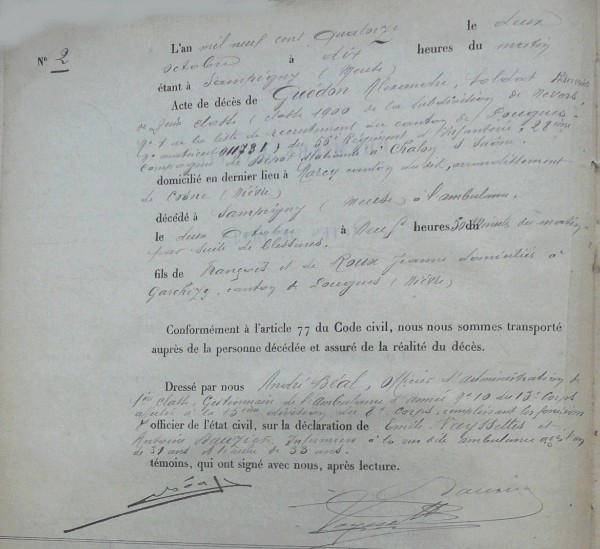 N° 2
L'an mil neuf cent quatorze le deux
octobre à dix heures du matin
étant à Sampigny (Meuse)
Acte de décès de Guédon Alexandre, soldat
de 2ème classe (classe 1900 de la subdivision de Nevers,
n° 1 de la liste de recrutement du canton de Pougues
n° matricule 01173) du 56e Régiment d'Infanterie, 28ème
compagnie de Dépôt stationnée à Chalon s/ Saône.
domicilié en dernier lieu à canton du dit, arrondissement
de Cosne (Nièvre)
décédé à Sampigny (Meuse) à l'ambulance
le deux octobre à neuf heures 30 minutes du matin
par suite de blessures.
fils de François et de Roux Jeanne domiciliés à
Garchizy, canton de Pougues (Nièvre)
Conformément à l'article 77 du Code civil, nous nous sommes transporté
auprès de la personne décédée et assuré de la réalité du décès.
Dressé par nous André Béal, Officier d'administration de
1ère classe, Gestionnaire de l'Ambulance d'armée n° 10 du 13e Corps
à la 15ème division du 8e Corps, remplissant les fonctions
d'officier de l'état civil, sur la déclaration de Emile Vayssettes et
Antoine Infirmiers à la susdite ambulance
de 31 ans de 33 ans.
témoins, qui ont signé avec nous, après lecture.
Béal